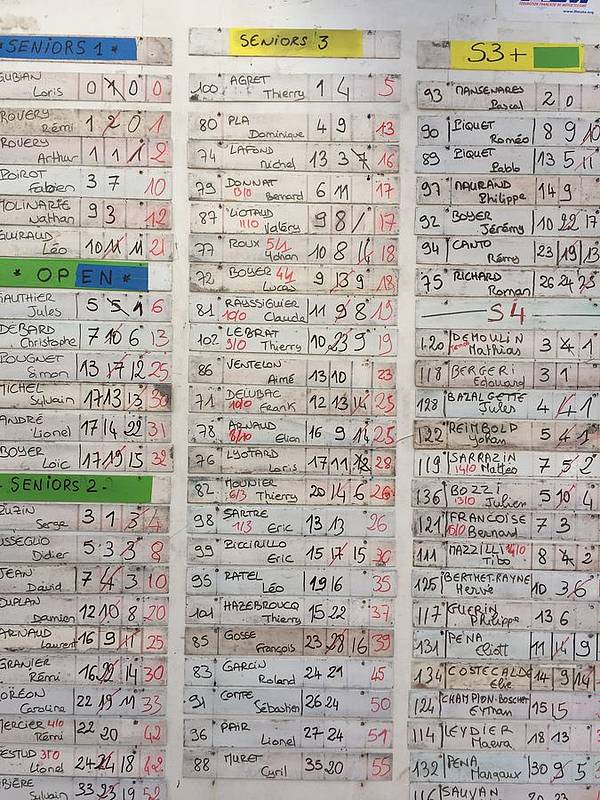 * SENIORS 1 *
Loris 0 1 0 0
Rémi 1 2 0 1
Arthur 1 1 1 2
POIROT
Fabien 3 7 10
Nathan 9 3 12
GUIRAUD
Léo 10 11 11 21
* OPEN *
GAUTHIER
Jules 5 5 1 6
DEBARD
Christophe 7 10 6 13
POUGNET
Simon 13 17 12 25
MICHEL
Sylvain 17 13 13 30
ANDRÉ
Lionel 17 14 22 31
BOYER
Loïc 17 19 15 32
SENIORS 2
Serge 3 1 3 4
Didier 5 3 3 8
JEAN
David 7 4 3 10
Damien 12 10 8 20
ARNAUD
Laurent 16 9 11 25
GRANIER
Rémi 16 22 14 30
Caroline 22 19 11 33
MERCIER 4/10
Rémi 22 20 42
Lionel 24 24 18 42
Sylvain 33 23 19 52
SENIORS 3
100 AGRET
Thierry 1 4 5
80 PLA
Dominique 4 9 13
74 LAFOND
Michel 13 3 7 16
79 DONNAT
Bernard 6 11 17
87 LIOTAUD
11/10 Valéry 9 8 / 17
77 ROUX 5/1
Yohan 10 8 14 18
72 BOYER 4/1
Lucas 9 13 9 18
81 RAYSSIGUIER
10/10 Claude 11 9 8 19
102 LEBRAT
3/10 Thierry 10 23 9 19
86 VENTELON
Aimé 13 10 23
71 DELUBAC
10/10 Frank 12 13 14 25
78 ARNAUD
8/10 Elian 16 9 14 25
76 LYOTARD
Loris 17 11 18 28
82 MOUNIER
6/3 Thierry 20 14 6 26
98 SARTRE
1/3 Eric 13 13 26
99 BICCIRILLO
Eric 15 17 15 30
95 RATEL
Léo 19 16 35
101 HAZEBROUCQ
Thierry 15 22 37
85 GOSSE
François 23 28 16 39
83 GARCIN
Roland 24 21 45
91 COMTE
Sébastien 26 24 50
96 PAIR
Lionel 27 24 51
88 MURET
Cyril 35 20 55
S3 +
93 MANSENARES
Pascal 2 0
90 PIQUET
Roméo 8 9 10
89 PIQUET
Pablo 13 5 11
97 MAURAND
Philippe 14 9
92 BOYER
Jérémy 10 22 17
94 CANTO
Rémy 23 19 13
75 RICHARD
Roman 26 24 25
S4
120 DEMOULIN
Matthias 3 4 1
118 BERGERI
Edouard 3 1
128 BAZALGETTE
Jules 4 4 1
122 REIMBOLD
Yohan 5 4 1
119 SARRAZIN
14/10 Mattéo 7 5 2
136 BOZZI
13/10 Julien 5 10 4
121 FRANCOISE
Bernard 7 3
111 MAZZILLI
Tibo 8 4 2
125 BERTHET.RAYNE
Hervé 10 3 6
117 GUERIN
Philippe 13 6
131 PENA
Eliott 11 14 9
134 COSTECALDE
Elie 14 9 14
124 CHAMPION-BOSCHET
Eyman 15 15
114 LEYDIER
Maeva 18 13
132 PENA
Margaux 30 9 5
116 SAUVAN